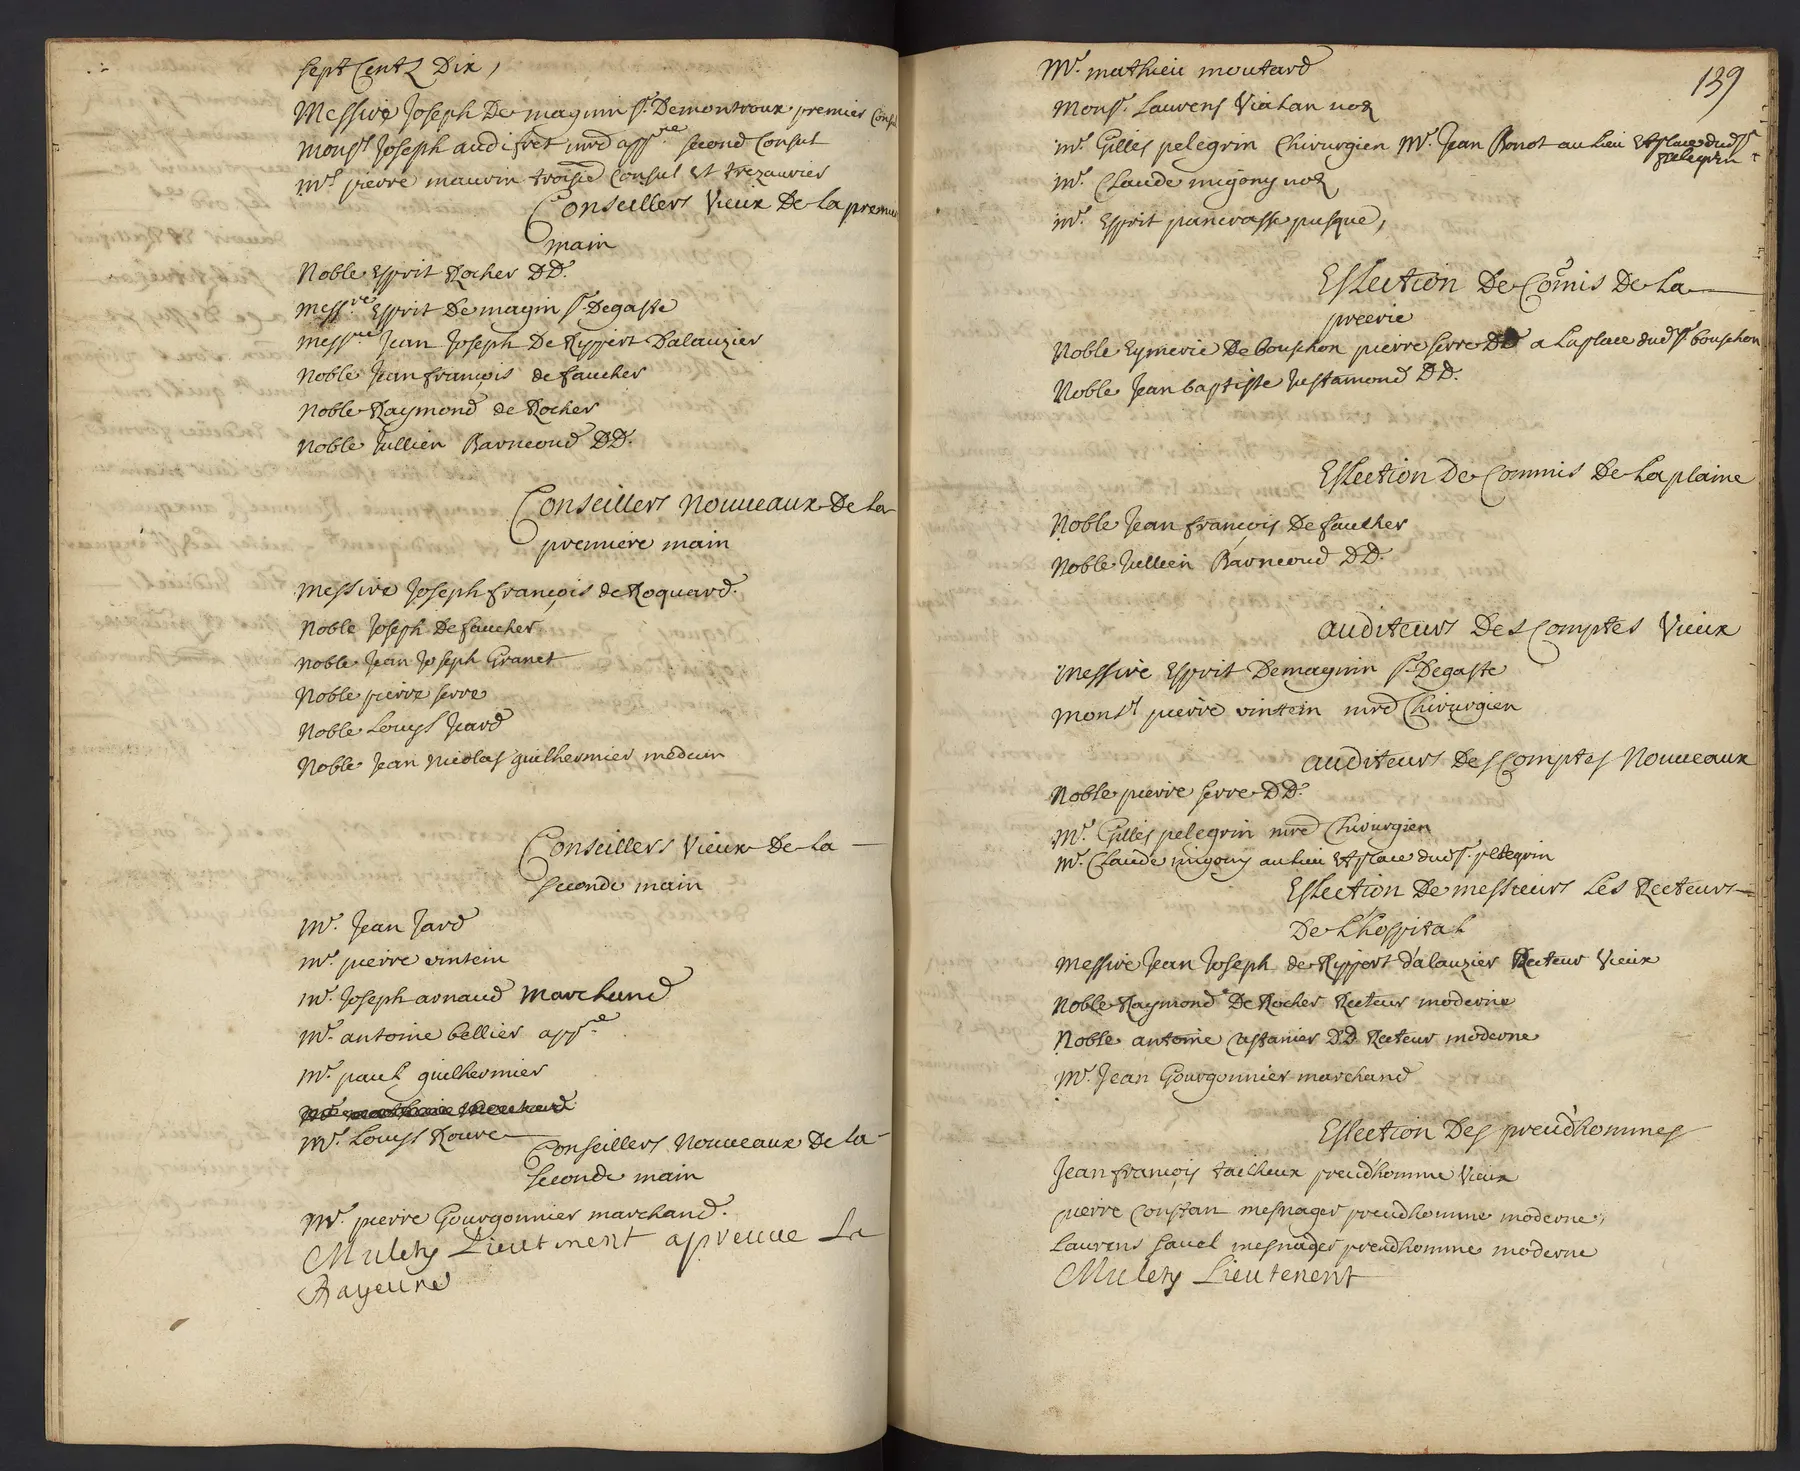 sept Centz Dix,
Messire Joseph De magnin Sr. Demontroux premier Consul
Monsr. Joseph audifret mrd appre. second Consul
Mr. pierre maurin troisie Consul et trezaurier
Conseillers Vieux De La premiere
main
Noble Esprit Rocher DD.
Messre. Esprit Demagnin Sr. Degaste
Messire Jean Joseph De Rippert Dalauzier
Noble Jean françois de faucher
Noble Raymond de Rocher
Noble Jullien Barneoud DD.
Conseillers Nouveaux De La
premiere main
Messire Joseph françois de Roquard.
Noble Joseph De faucher
Noble Jean Joseph Granet
Noble pierre serre
Noble Louys Jard
Noble Jean Nicolas guilhermier medecin
Conseillers Vieux De La
seconde main
Mr. Jean Jard
Mr. pierre vintein
Mr. Joseph arnaud Marchand
Mr. antoine bellier appre.
Mr. paul guilhermier
Mr. Louys Rouvre
Conseillers Nouveaux De La
seconde main
Mr. pierre Gourgonnier marchand.
Mulety Lieutenent apreuve La
Rayeure
139
Mr. mathieu moutard
Monsr. Laurens Vialan nore
Mr. Gilles pelegrin Chirurgien Mr. Jean Bonot au lieu et place dudt Sr
pelegrin
Mr. Claude migony nore
Mr. Esprit pancrasse pusque,
Eslection De Comis De La
preerie
Noble Eymeric De bouschon pierre serre DD a La place dud Sr. bouschon
Noble Jean baptiste Justamond DD.
Eslection De Commis De La plaine
Noble Jean françois De faucher
Noble Jullien Barneoud DD.
auditeurs Des Comptes Vieux
Messire Esprit Demagnin Sr. Degaste
Monsr. pierre vintein mrd Chirurgien
auditeurs Des Comptes Nouveaux
Noble pierre serre DD.
Mr. Gilles pelegrin mrd Chirurgien
Mr. Claude migony au lieu et place dud Sr. pelegrin
Eslection De messieurs Les Recteurs
De L'hospital
Messire Jean Joseph de Rippert d'alauzier Recteur Vieux
Noble Raymond De Rocher Recteur moderne
Noble antoine Castanier DD Recteur moderne
Mr. Jean Gourgonnier marchand
Eslection Des preud'hommes
Jean françois tailheux preud'homme Vieux
pierre Constan mesnager preud'homme moderne,
Laurens Sauel mesnager preud'homme moderne
Mulety Lieutenent